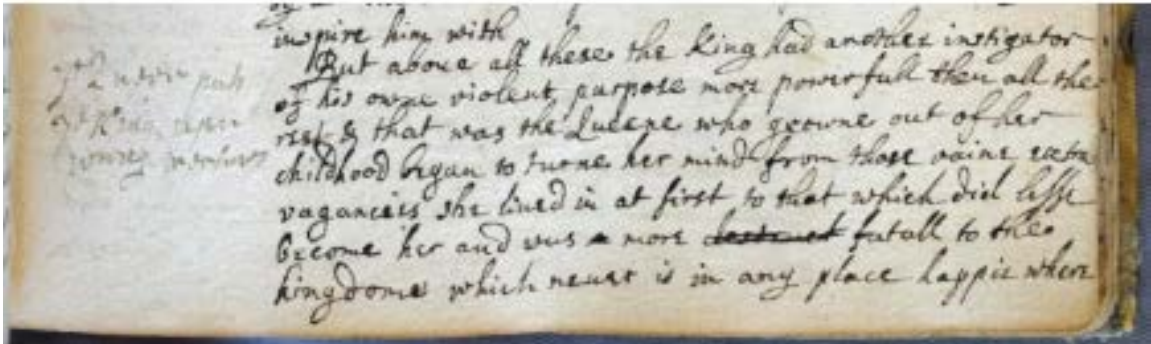 inspire him with
But above all these the King had another instigator
of his owne violent purpose more powerfull then all the
rest & that was the Queene who growne out of her
childhood began to turne her mind from those vaine extra
vagancies she lived in at first to that which did lesse
become her and was more fatall to the
kingdome which never is in any place happie where